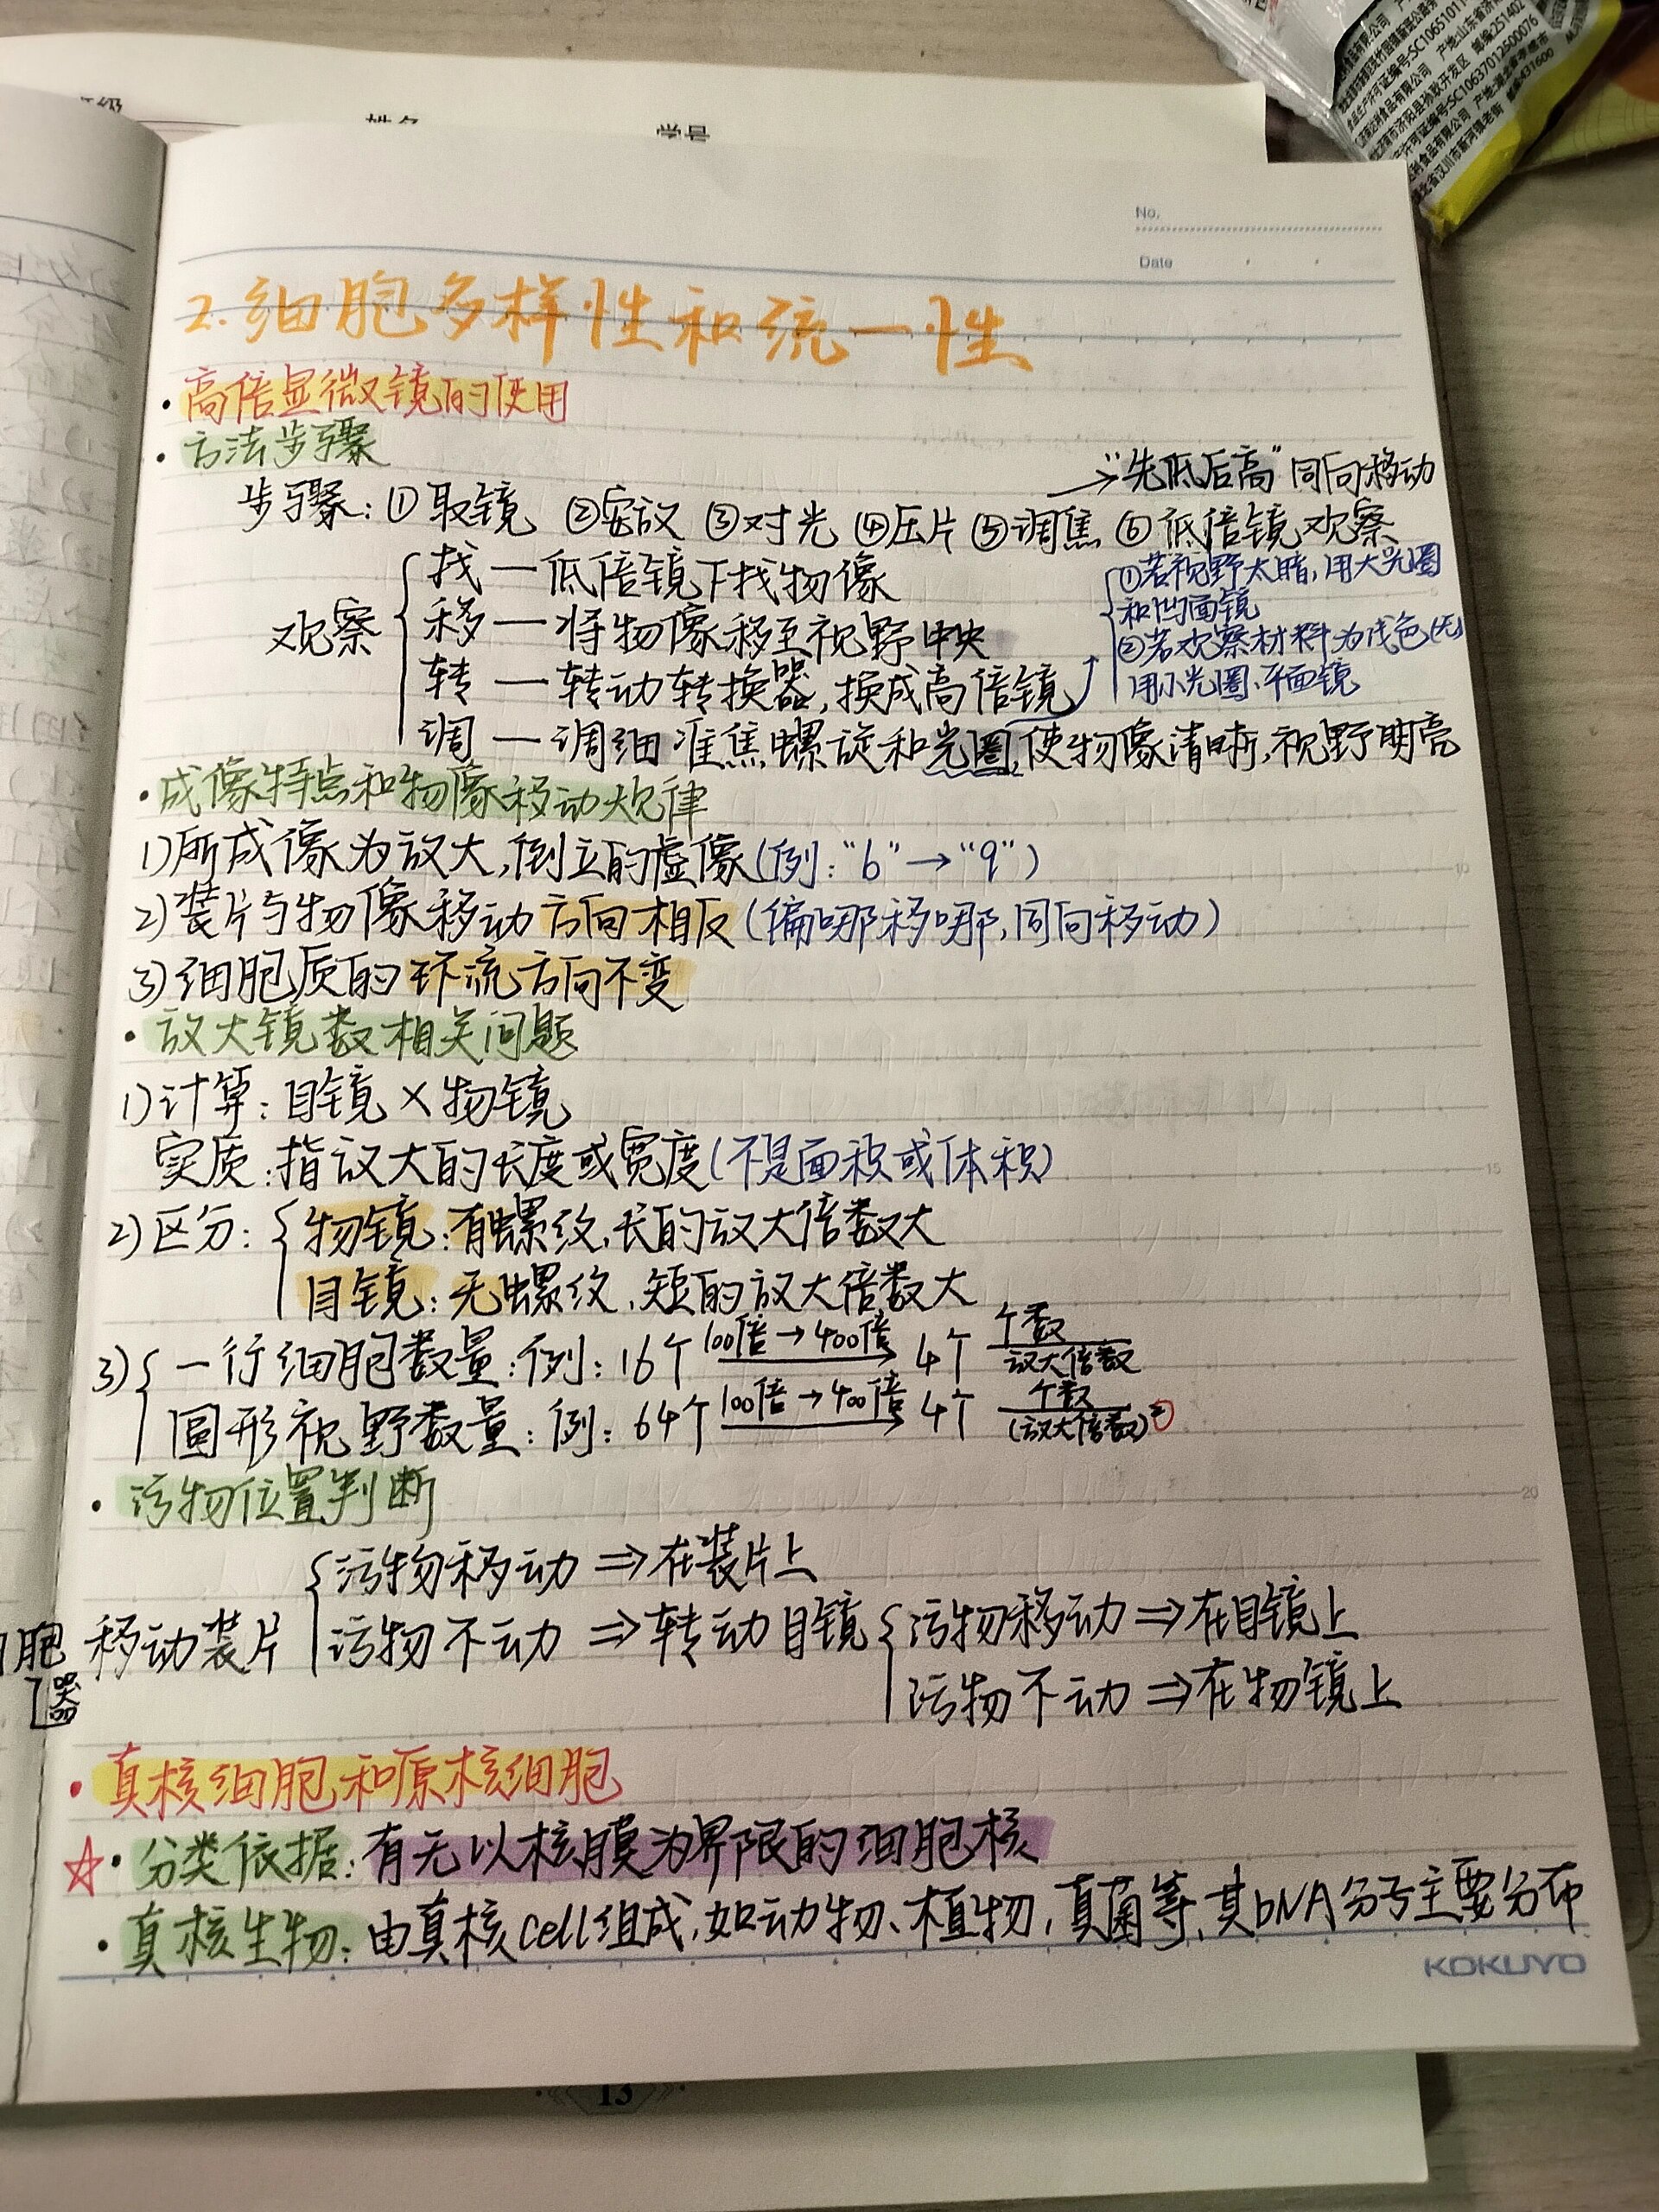 姓名 学号
No.
Date
2.细胞多样性和统一性
·高倍显微镜的使用
·方法步骤
→“先低后高”同向移动
步骤:①取镜 ②安放 ③对光 ④压片 ⑤调焦 ⑥低倍镜观察
观察
找—低倍镜下找物像
移—将物像移至视野中央
转—转动转换器,换成高倍镜
调—调细准焦螺旋和光圈,使物像清晰,视野明亮
①若视野太暗,用大光圈
和凹面镜
②若观察材料为浅色(无)
用小光圈、平面镜
·成像特点和物像移动规律
1)所成像为放大,倒立的虚像(例:“b”→“q”)
2)装片与物像移动方向相反(偏哪移哪,同向移动)
3)细胞质的环流方向不变
·放大镜数相关问题
1)计算:目镜×物镜
实质:指放大的长度或宽度(不是面积或体积)
2)区分:
物镜:有螺纹,长的放大倍数大
目镜:无螺纹,短的放大倍数大
3) 一行细胞数量:例:16个 100倍→400倍 4个 个数/放大倍数
圆形视野数量:例:64个 100倍→400倍 4个 个数/(放大倍数)²
·污物位置判断
移动装片
污物移动⇒在装片上
污物不动⇒转动目镜
污物移动⇒在目镜上
污物不动⇒在物镜上
胞
器
·真核细胞和原核细胞
☆·分类依据:有无以核膜为界限的细胞核
·真核生物:由真核cell组成,如动物、植物,真菌等,其DNA分子主要分布
KOKUYO
5
10
15
20
13